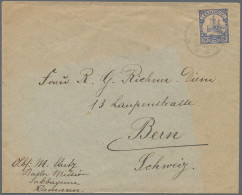 Frau R. G. Riehme Dürri
13 Laupenstrasse
Bern
Schweiz.
Abs: M.
Basler Mission
Kamerun